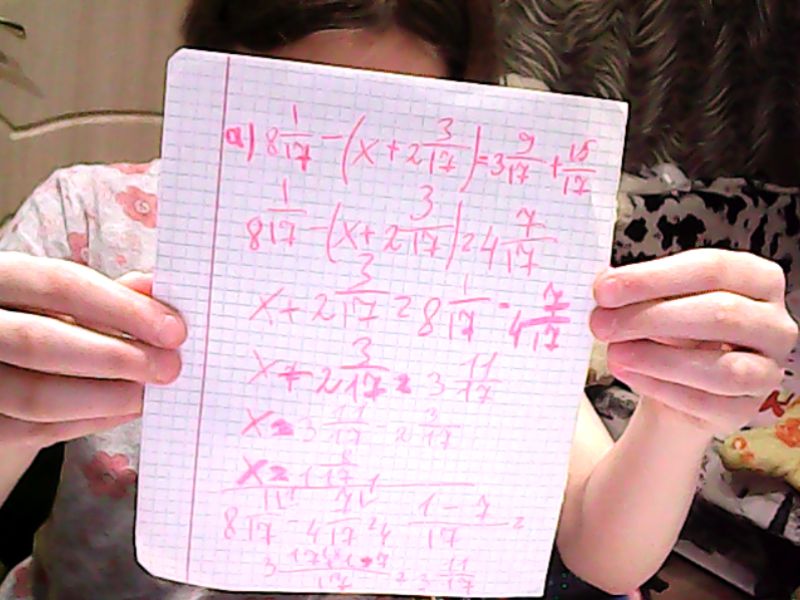 a) 8 1/17 - (x + 2 3/17) = 3 9/17 + 15/17
8 1/17 - (x + 2 3/17) = 4 7/17
x + 2 3/17 = 8 1/17 - 4 7/17
x + 2 3/17 = 3 11/17
x = 3 11/17 - 2 3/17
x = 1 8/17
17 = 4 1 - 7/17 =
3 = 3 11/17